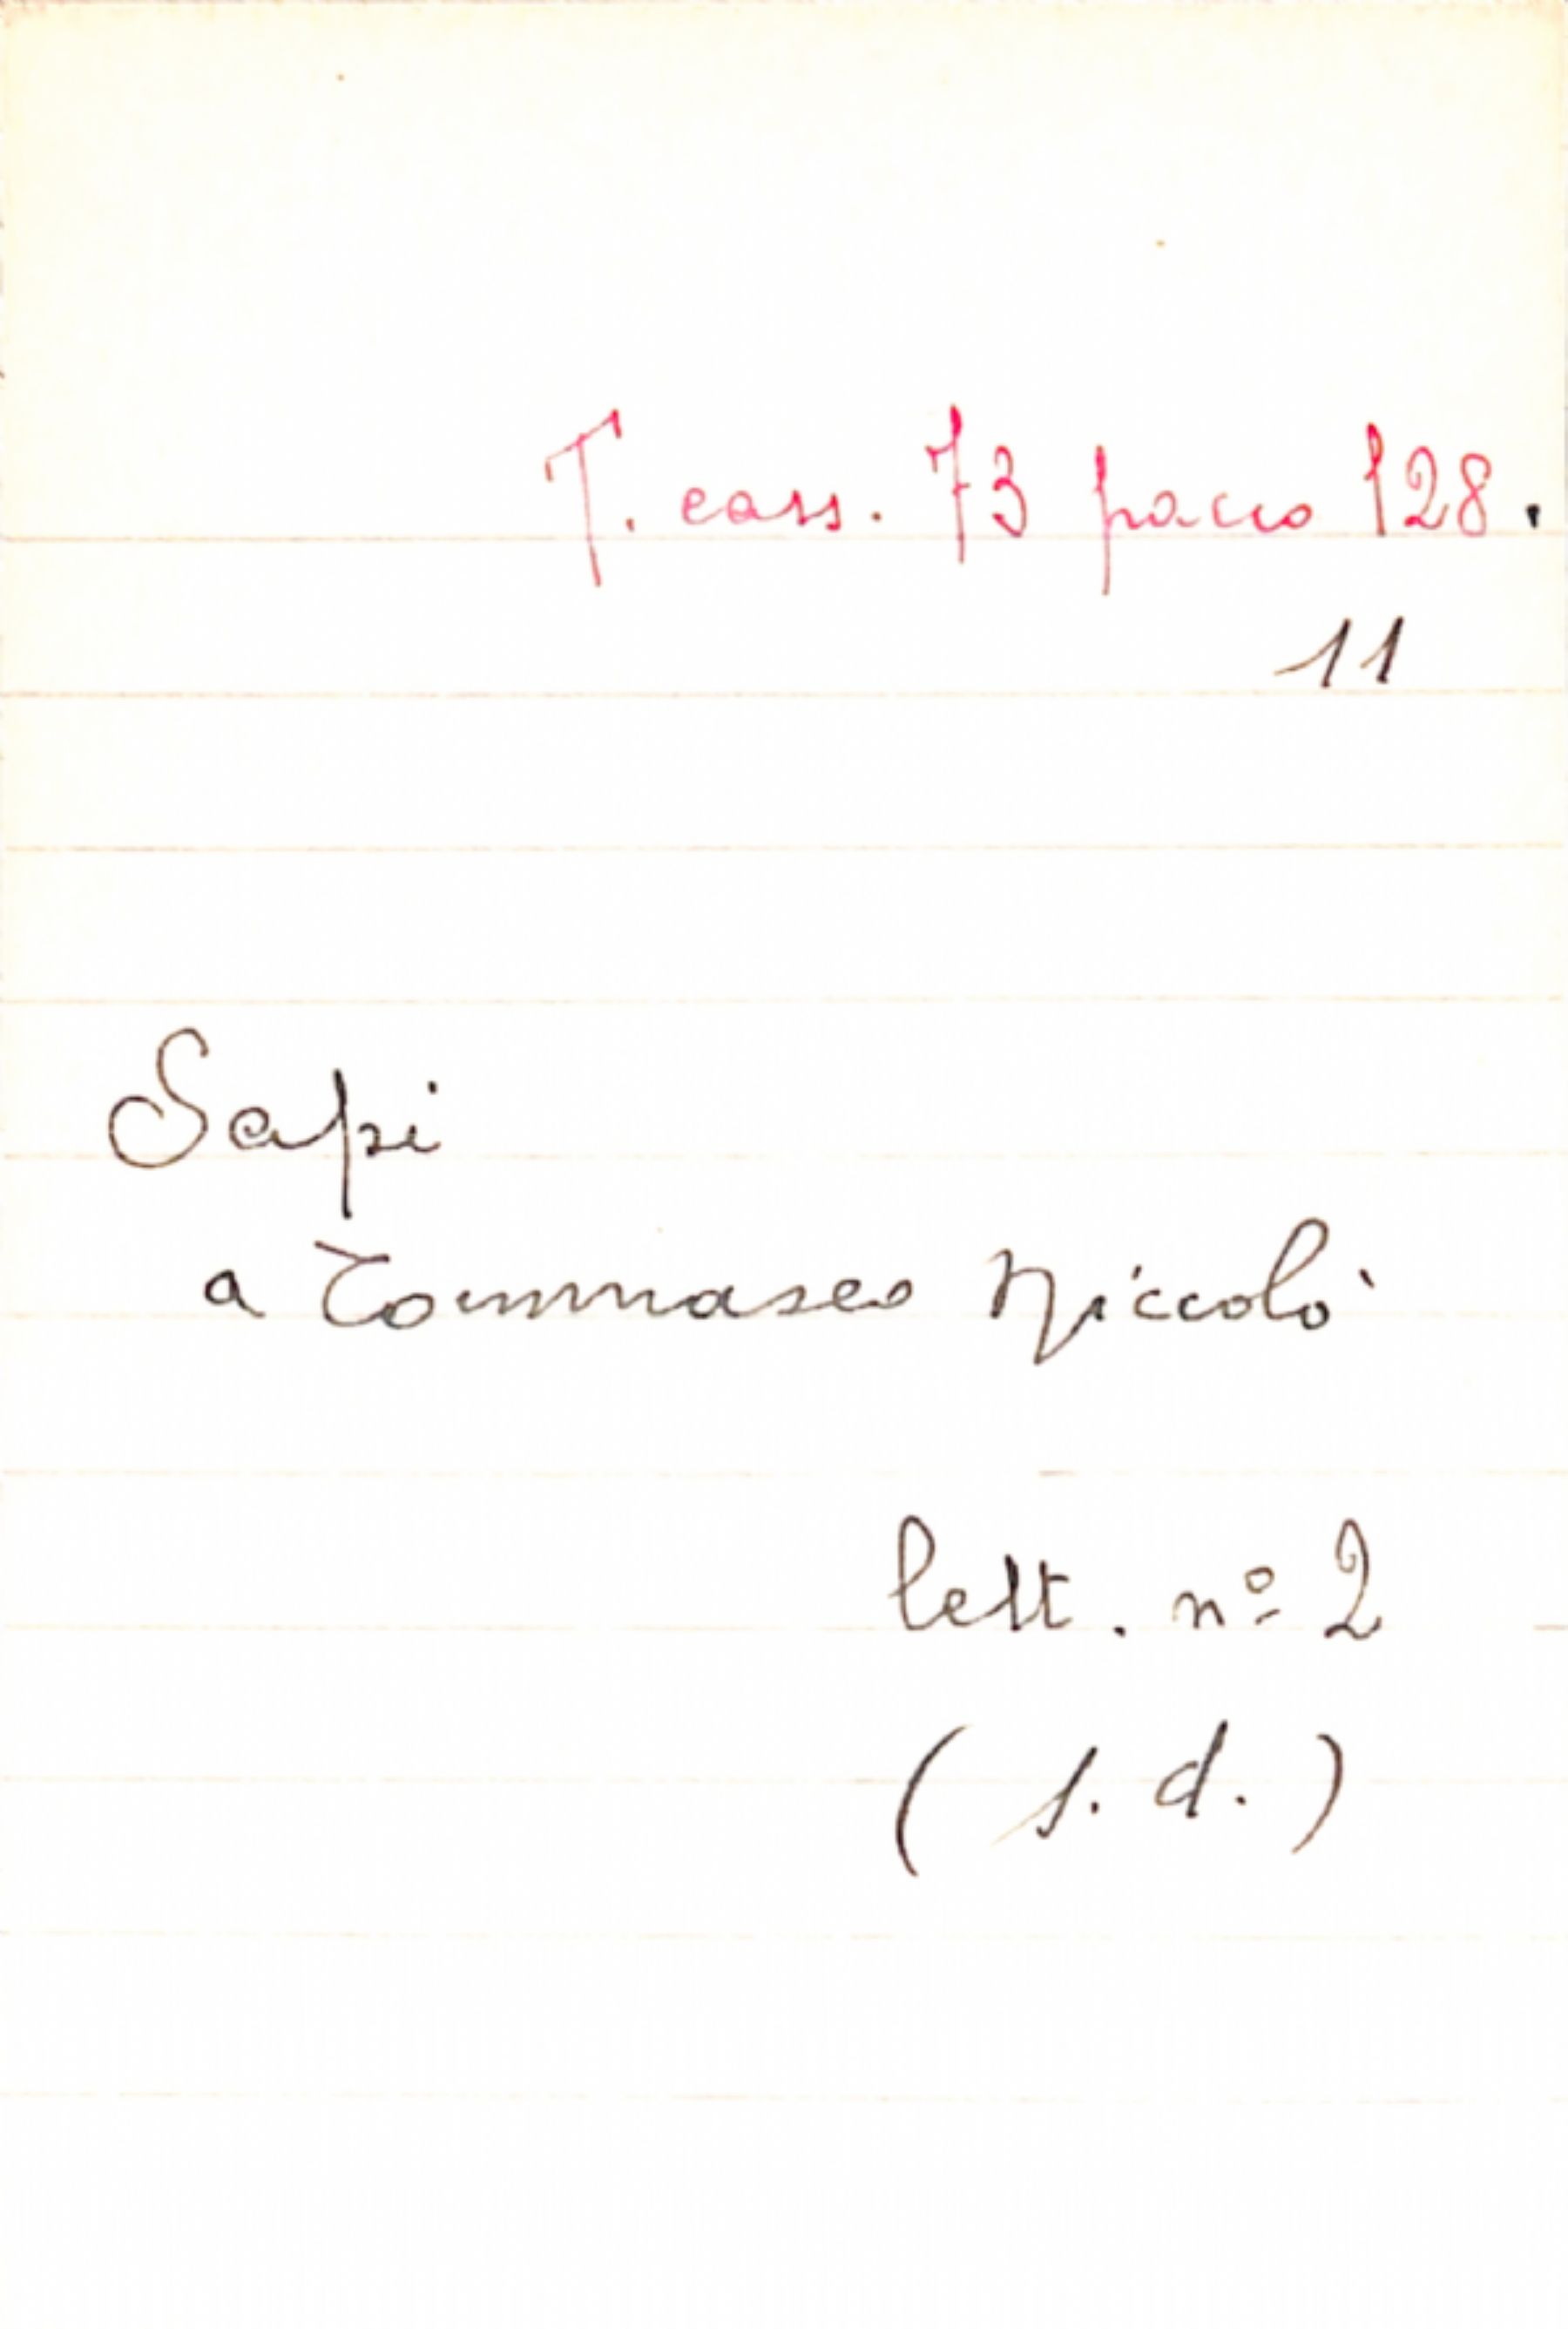 T. cass. 73 pacco 128.
11
Sapi
a Tommaseo Niccolò
lett. nº 2
(s. d.)